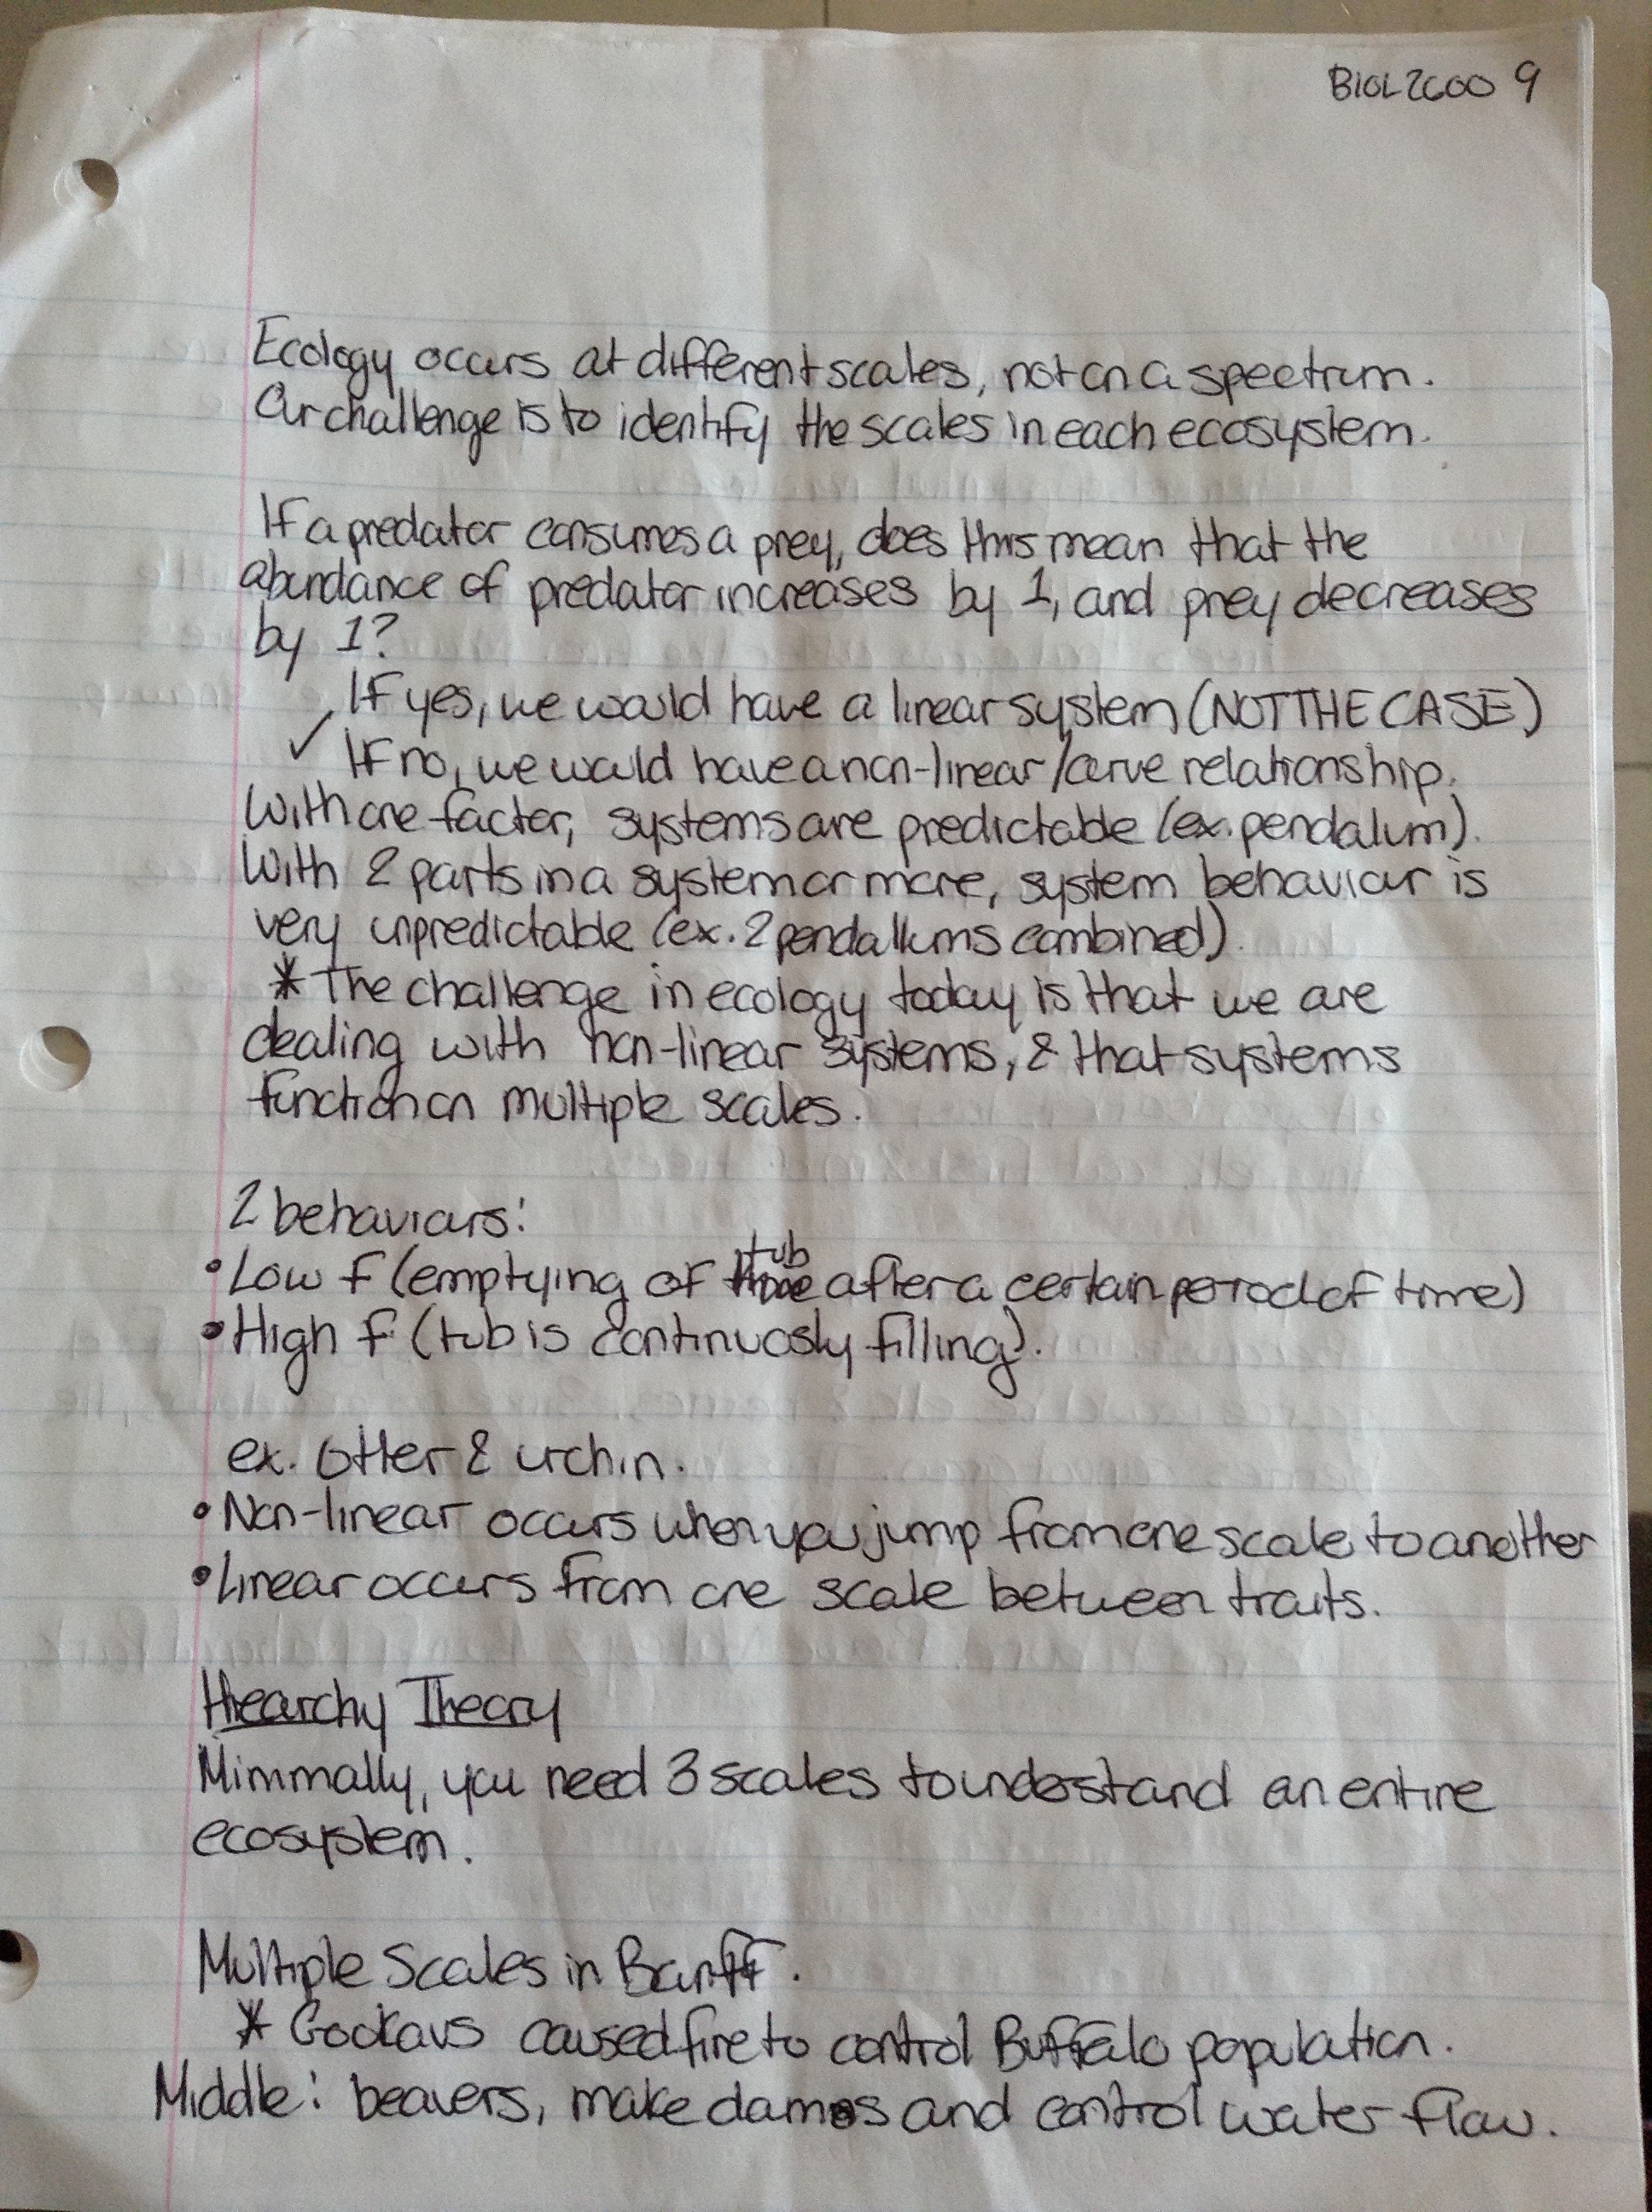 BIOL2600 9
Ecology occurs at different scales, not on a spectrum.
Our challenge is to identify the scales in each ecosystem.
If a predator consumes a prey, does this mean that the
abundance of predator increases by 1, and prey decreases
by 1?
If yes, we would have a linear system (NOT THE CASE)
✓ If no, we would have a non-linear/curve relationship.
With one factor, systems are predictable (ex. pendalum).
With 2 parts in a system or more, system behaviour is
very unpredictable (ex. 2 pendallums combined).
* The challenge in ecology today is that we are
dealing with non-linear systems, & that systems
function on multiple scales.
2 behaviours:
• Low f (emptying of tub after a certain period of time)
• High f (tub is continuosly filling).
ex. Otter & urchin.
• Non-linear occurs when you jump from one scale to another
• Linear occurs from one scale between traits.
Hiearchy Theory
Minimally, you need 3 scales to understand an entire
ecosystem.
Multiple Scales in Banff.
* caused fire to control Buffalo population.
Middle: beavers, make dams and control water flow.